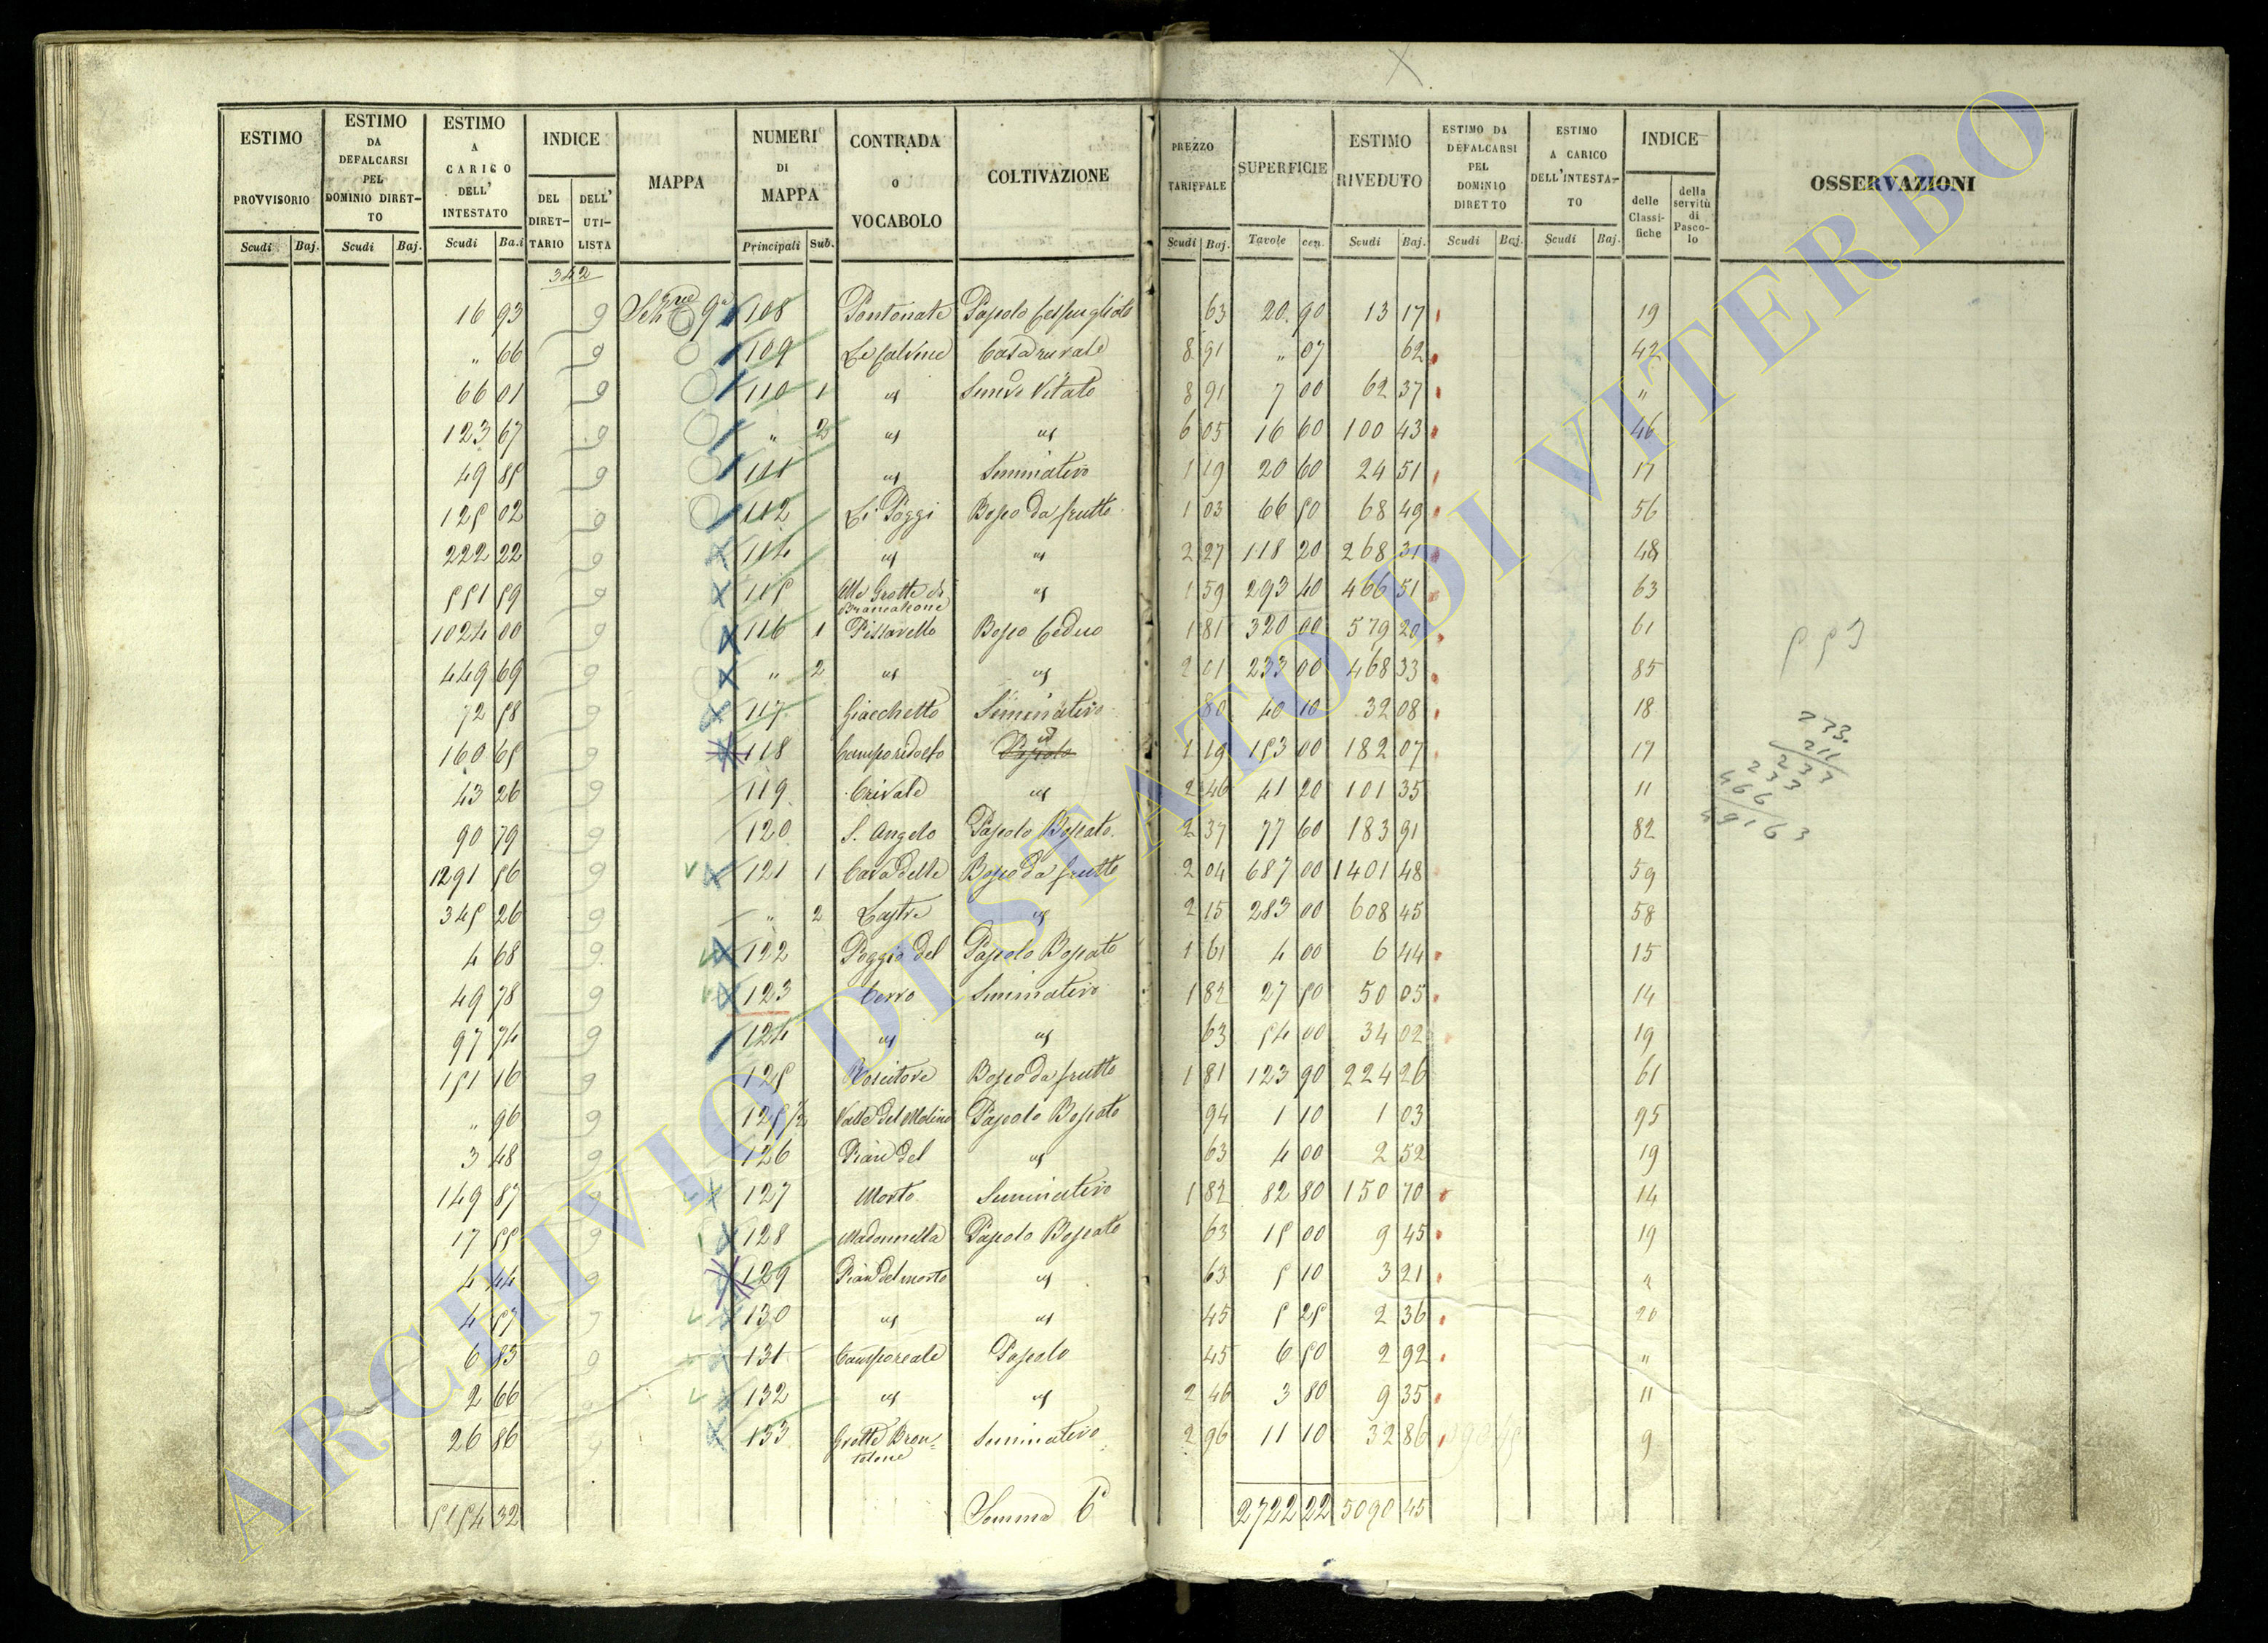 ESTIMO PROVVISORIO Scudi Baj.
ESTIMO DA DEFALCARSI PEL DOMINIO DIRET-TO Scudi Baj.
ESTIMO A CARICO DELL' INTESTATO Scudi Ba.i
INDICE DEL DIRET-TARIO DELL' UTI-LISTA
MAPPA
NUMERI DI MAPPA Principali Sub.
CONTRADA O VOCABOLO
COLTIVAZIONE
PREZZO TARIFFALE Scudi Baj.
SUPERFICIE Tavole cen.
ESTIMO RIVEDUTO Scudi Baj.
ESTIMO DA DEFALCARSI PEL DOMINIO DIRETTO Scudi Baj.
ESTIMO A CARICO DELL'INTESTA-TO Scudi Baj.
INDICE delle Classi-fiche della servitù di Pasco-lo
OSSERVAZIONI
342
16 93 9 Sez.ne 9a 108 Pontonate Pascolo Cespugliato 63 20 90 13 17 19
" 66 9 109 Le Salvine Casa rurale 8 91 " 07 62 42
66 01 9 110 1 id Semvo Vitato 8 91 7 00 62 37 "
123 67 9 " 2 id id 6 05 16 60 100 43 46
49 85 9 111 id Seminativo 1 19 20 60 24 51 17
125 02 9 112 Li Poggi Bosco da frutto 1 03 66 50 68 49 56
222 22 9 114 id id 2 27 118 20 268 31 48
551 59 9 115 Alle Grotte di Brancaleone id 1 59 293 40 466 51 63
1024 00 9 116 1 Pissarello Bosco Ceduo 1 81 320 00 579 20 61
449 69 9 " 2 id id 2 01 233 00 468 33 85
72 58 9 117 Giacchetto Seminativo 80 40 10 32 08 18
160 65 9 118 Camporidolfo Pascolo id 1 19 153 00 182 07 17
43 26 9 119 Crivale id 2 46 41 20 101 35 11
90 79 9 120 S. Angelo Pascolo Boscato 2 37 77 60 183 91 82
1291 56 9 121 1 Cava delle Bosco da frutto 2 04 687 00 1401 48 59
345 26 9 " 2 Lastre id 2 15 283 00 608 45 58
4 68 9 122 Poggio del Pascolo Boscato 1 61 4 00 6 44 15
49 78 9 123 Cerro Seminativo 1 82 27 50 50 05 14
97 74 9 124 id id 63 54 00 34 02 19
151 16 9 125 Bosco da frutto 1 81 123 90 224 26 61
" 96 9 125 1/2 Valle del Molino Pascolo Boscato 94 1 10 1 03 95
3 48 9 126 Pian del id 63 4 00 2 52 19
149 87 9 127 Morto Seminativo 1 82 82 80 150 70 14
17 55 9 128 Madonnella Pascolo Boscato 63 15 00 9 45 19
4 44 9 129 Pian del morto id 63 5 10 3 21 "
4 57 9 130 id id 45 5 25 2 36 20
6 83 9 131 Camporeale Pascolo 45 6 50 2 92 "
2 66 9 132 id id 2 46 3 80 9 35 11
26 86 9 133 Grotte Bran-=talone Seminativo 2 96 11 10 32 86 9
5154 32 Somma Ca 2722 22 5090 45
553
233
211
233
233
466
49163
ARCHIVIO DI STATO DI VITERBO